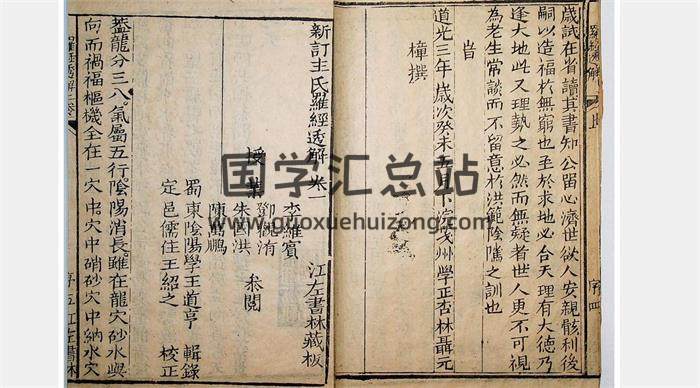 歲試在省讀其書知公留心濟世欲人安親骸利後
嗣以造福於無窮也至於求地必合天理有大德乃
逢大地此又理勢之必然而無疑者世人更不可視
為老生常談而不留意於洪範陰隲之訓也
旹
道光三年歲次癸未五月下浣戈州學正杏林聶元
樟撰
序四
新訂王氏羅經透解 卷一
江左書林藏板
李維賓
授業
朱國洪
陳鵬
參閱
蜀東陰陽學王道亨 輯錄
定邑儒住王紹之 校正
蓋龍分三八氣屬五行陰陽消長雖在龍穴砂水與
向而禍福樞機全在一穴中穴中硝砂穴中納水穴
序五
江左書林
国学汇总站
www.guoxuehuizong.com